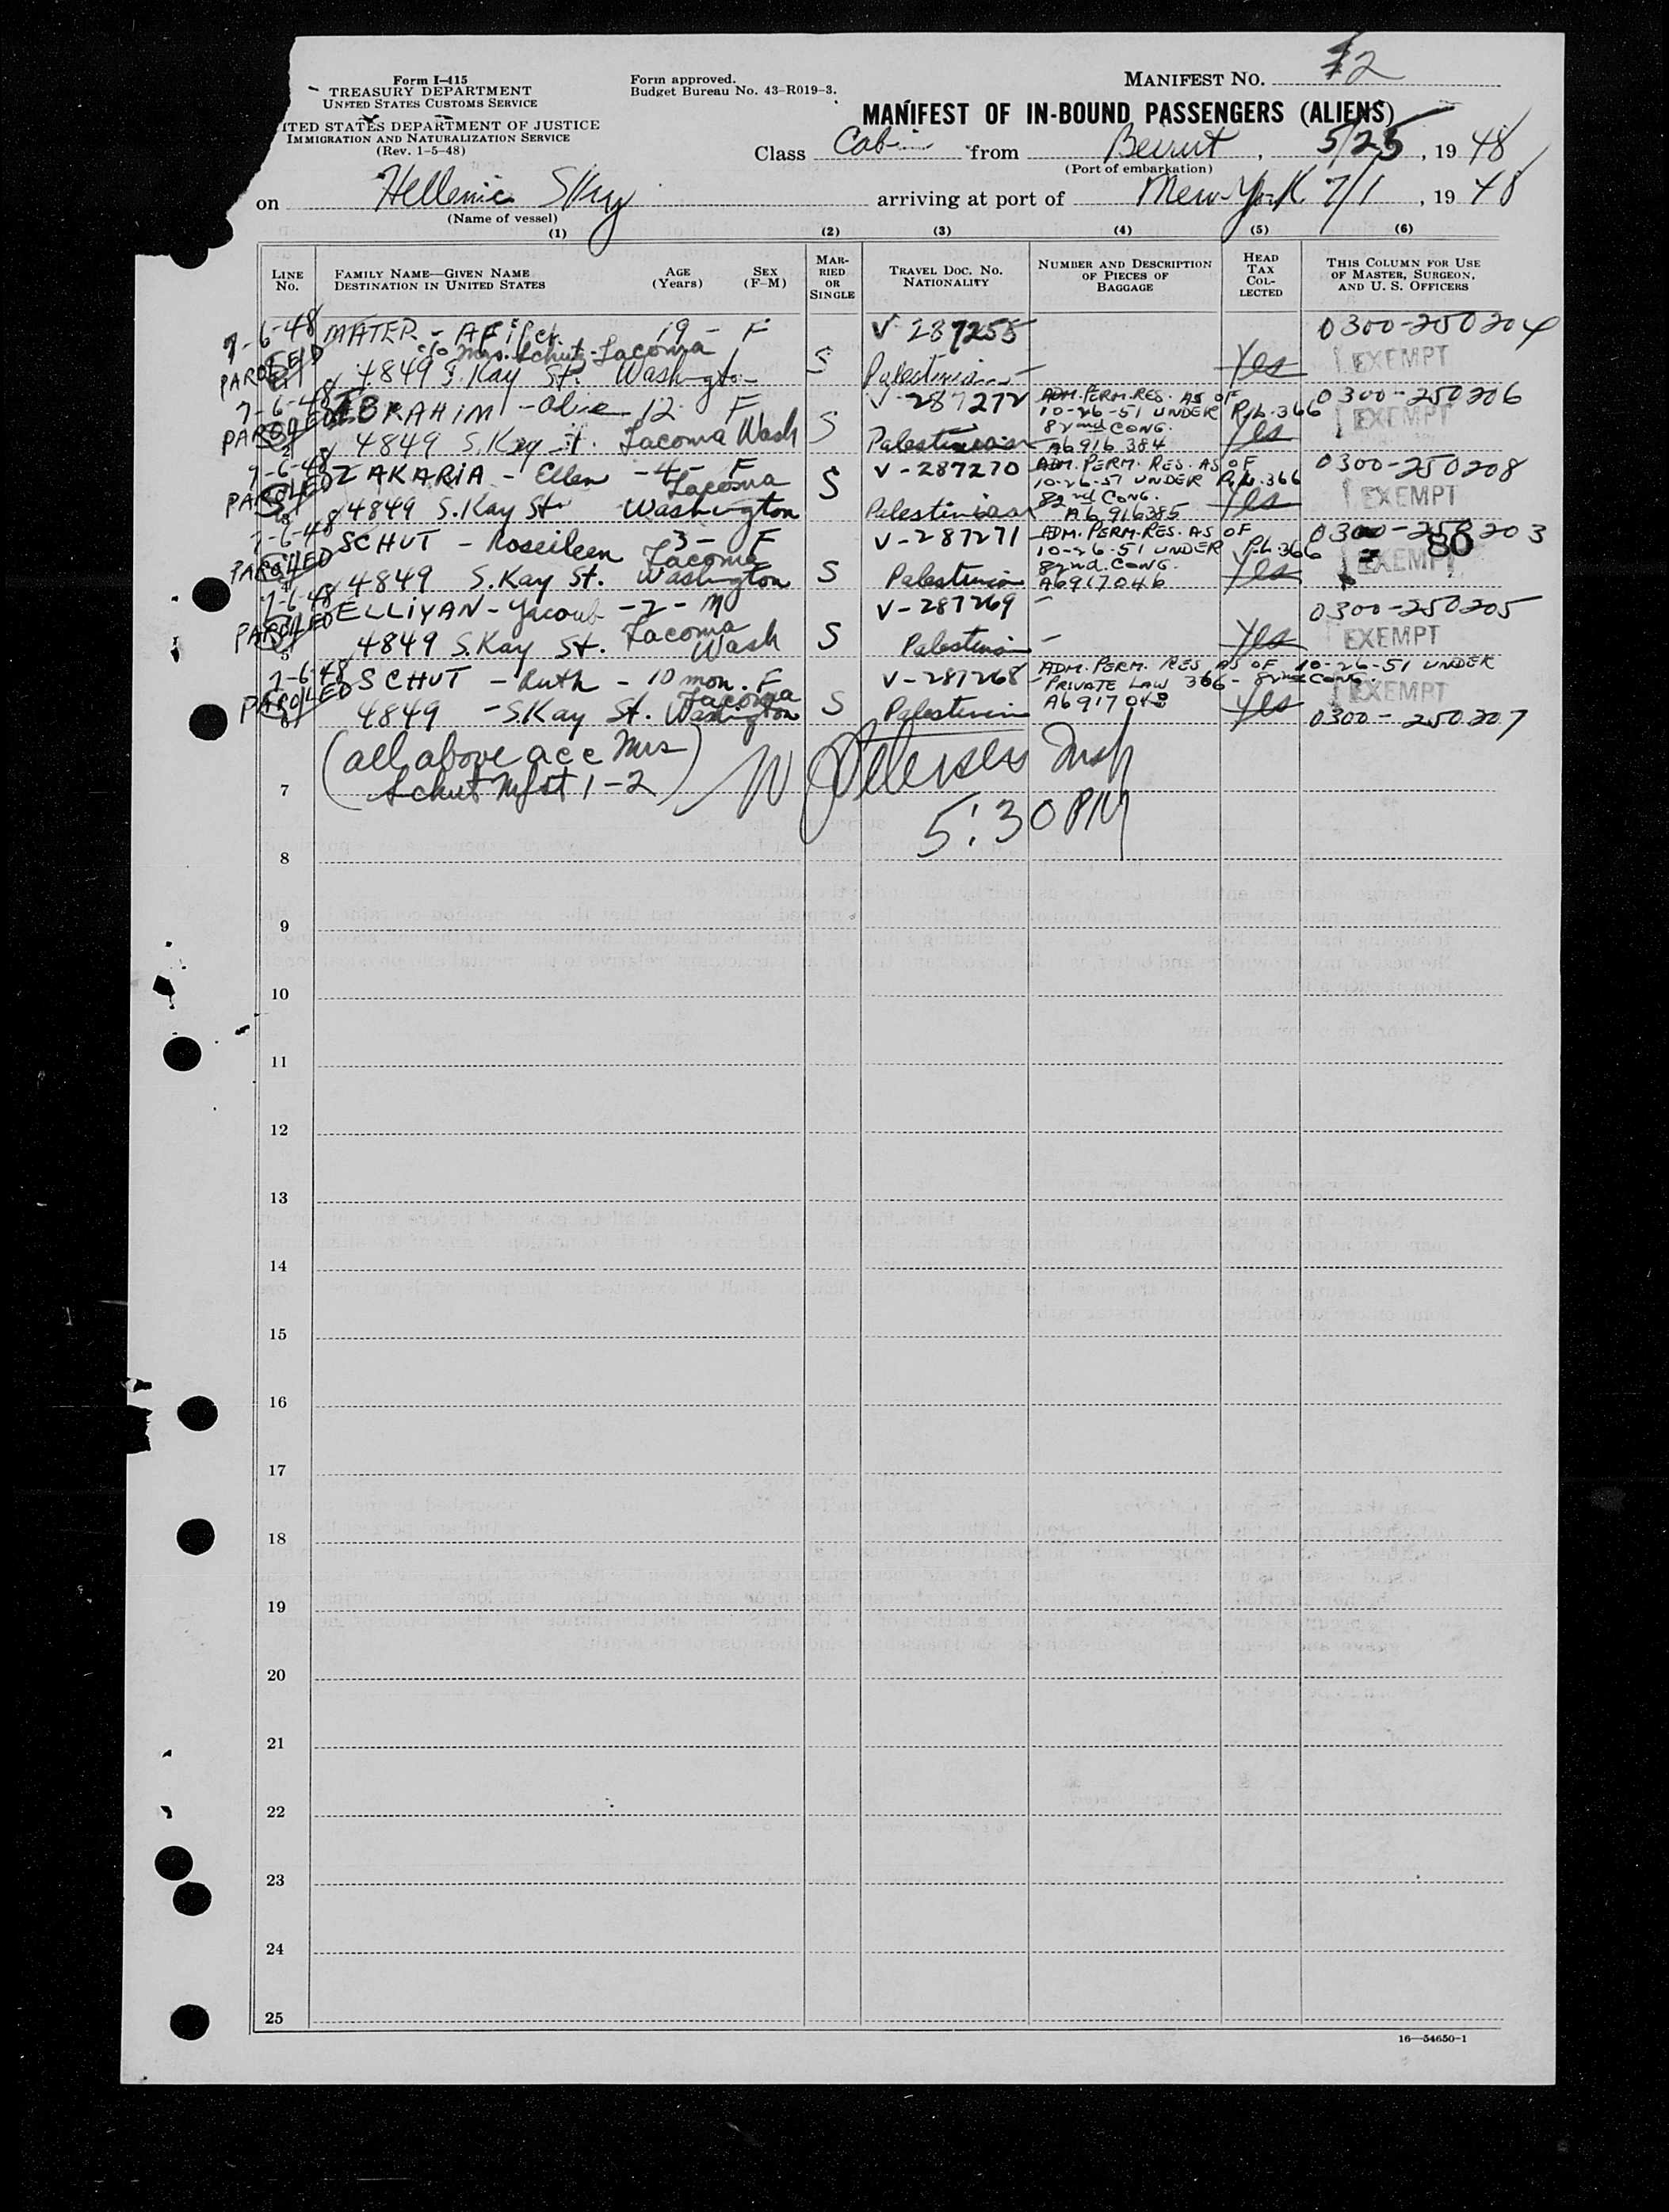 Form I-415
TREASURY DEPARTMENT
UNITED STATES CUSTOMS SERVICE
ITED STATES DEPARTMENT OF JUSTICE
IMMIGRATION AND NATURALIZATION SERVICE
(Rev. 1-5-48)
Form approved.
Budget Bureau No. 43-R019-3.
MANIFEST NO. 2
MANIFEST OF IN-BOUND PASSENGERS (ALIENS)
Class Cabin from Beirut, 5/25, 19 48
(Port of embarkation)
on Hellenic Sky arriving at port of New York 7/1, 19 48
(Name of vessel)
(1) (2) (3) (4) (5) (6)
LINE No. FAMILY NAME—GIVEN NAME DESTINATION IN UNITED STATES AGE (Years) SEX (F-M) MARRIED OR SINGLE TRAVEL DOC. NO. NATIONALITY NUMBER AND DESCRIPTION OF PIECES OF BAGGAGE HEAD TAX COLLECTED THIS COLUMN FOR USE OF MASTER, SURGEON, AND U. S. OFFICERS
7-6-48 MATER - 19 - F V-287255 0300-250204
c/o Mrs. Schut - Tacoma
PAROLED 1 4849 S. Kay St. Washington S Palestinian - Yes EXEMPT
7-6-48 EBRAHIM - Alice 12 F V-287272 ADM. PERM. RES. AS OF 0300-250206
10-26-51 UNDER P.L. 366
82nd CONG.
PAROLED 2 4849 S. Kay St. Tacoma Wash S Palestinian A6916384 Yes EXEMPT
7-6-48 ZAKARIA - Ellen - 4 - F V-287270 ADM. PERM. RES. AS OF 0300-250208
10-26-51 UNDER P.L. 366
82nd CONG.
PAROLED 3 4849 S. Kay St Tacoma Washington S Palestinian A6916385 Yes EXEMPT
7-6-48 SCHUT - Roseileen 3 - F V-287271 ADM. PERM. RES. AS OF 0300-250203
10-26-51 UNDER P.L. 366 80
82nd. CONG.
PAROLED 4 4849 S. Kay St. Tacoma Washington S Palestinian A6917046 Yes EXEMPT
7-6-48 ELLIYAN - Yacoub - 2 - M V-287269 - 0300-250205
PAROLED 5 4849 S. Kay St. Tacoma Wash S Palestinian - Yes EXEMPT
7-6-48 SCHUT - Ruth - 10 mon. F V-287268 ADM. PERM. RES AS OF 10-26-51 UNDER
PRIVATE LAW 366 - 82nd CONG.
PAROLED 6 4849 - S. Kay St. Tacoma Washington S Palestinian Yes EXEMPT
0300-250207
(all above acc Mrs
7 Schut Mfst 1-2)
5:30 PM
8
9
10
11
12
13
14
15
16
17
18
19
20
21
22
23
24
25
16—54650-1